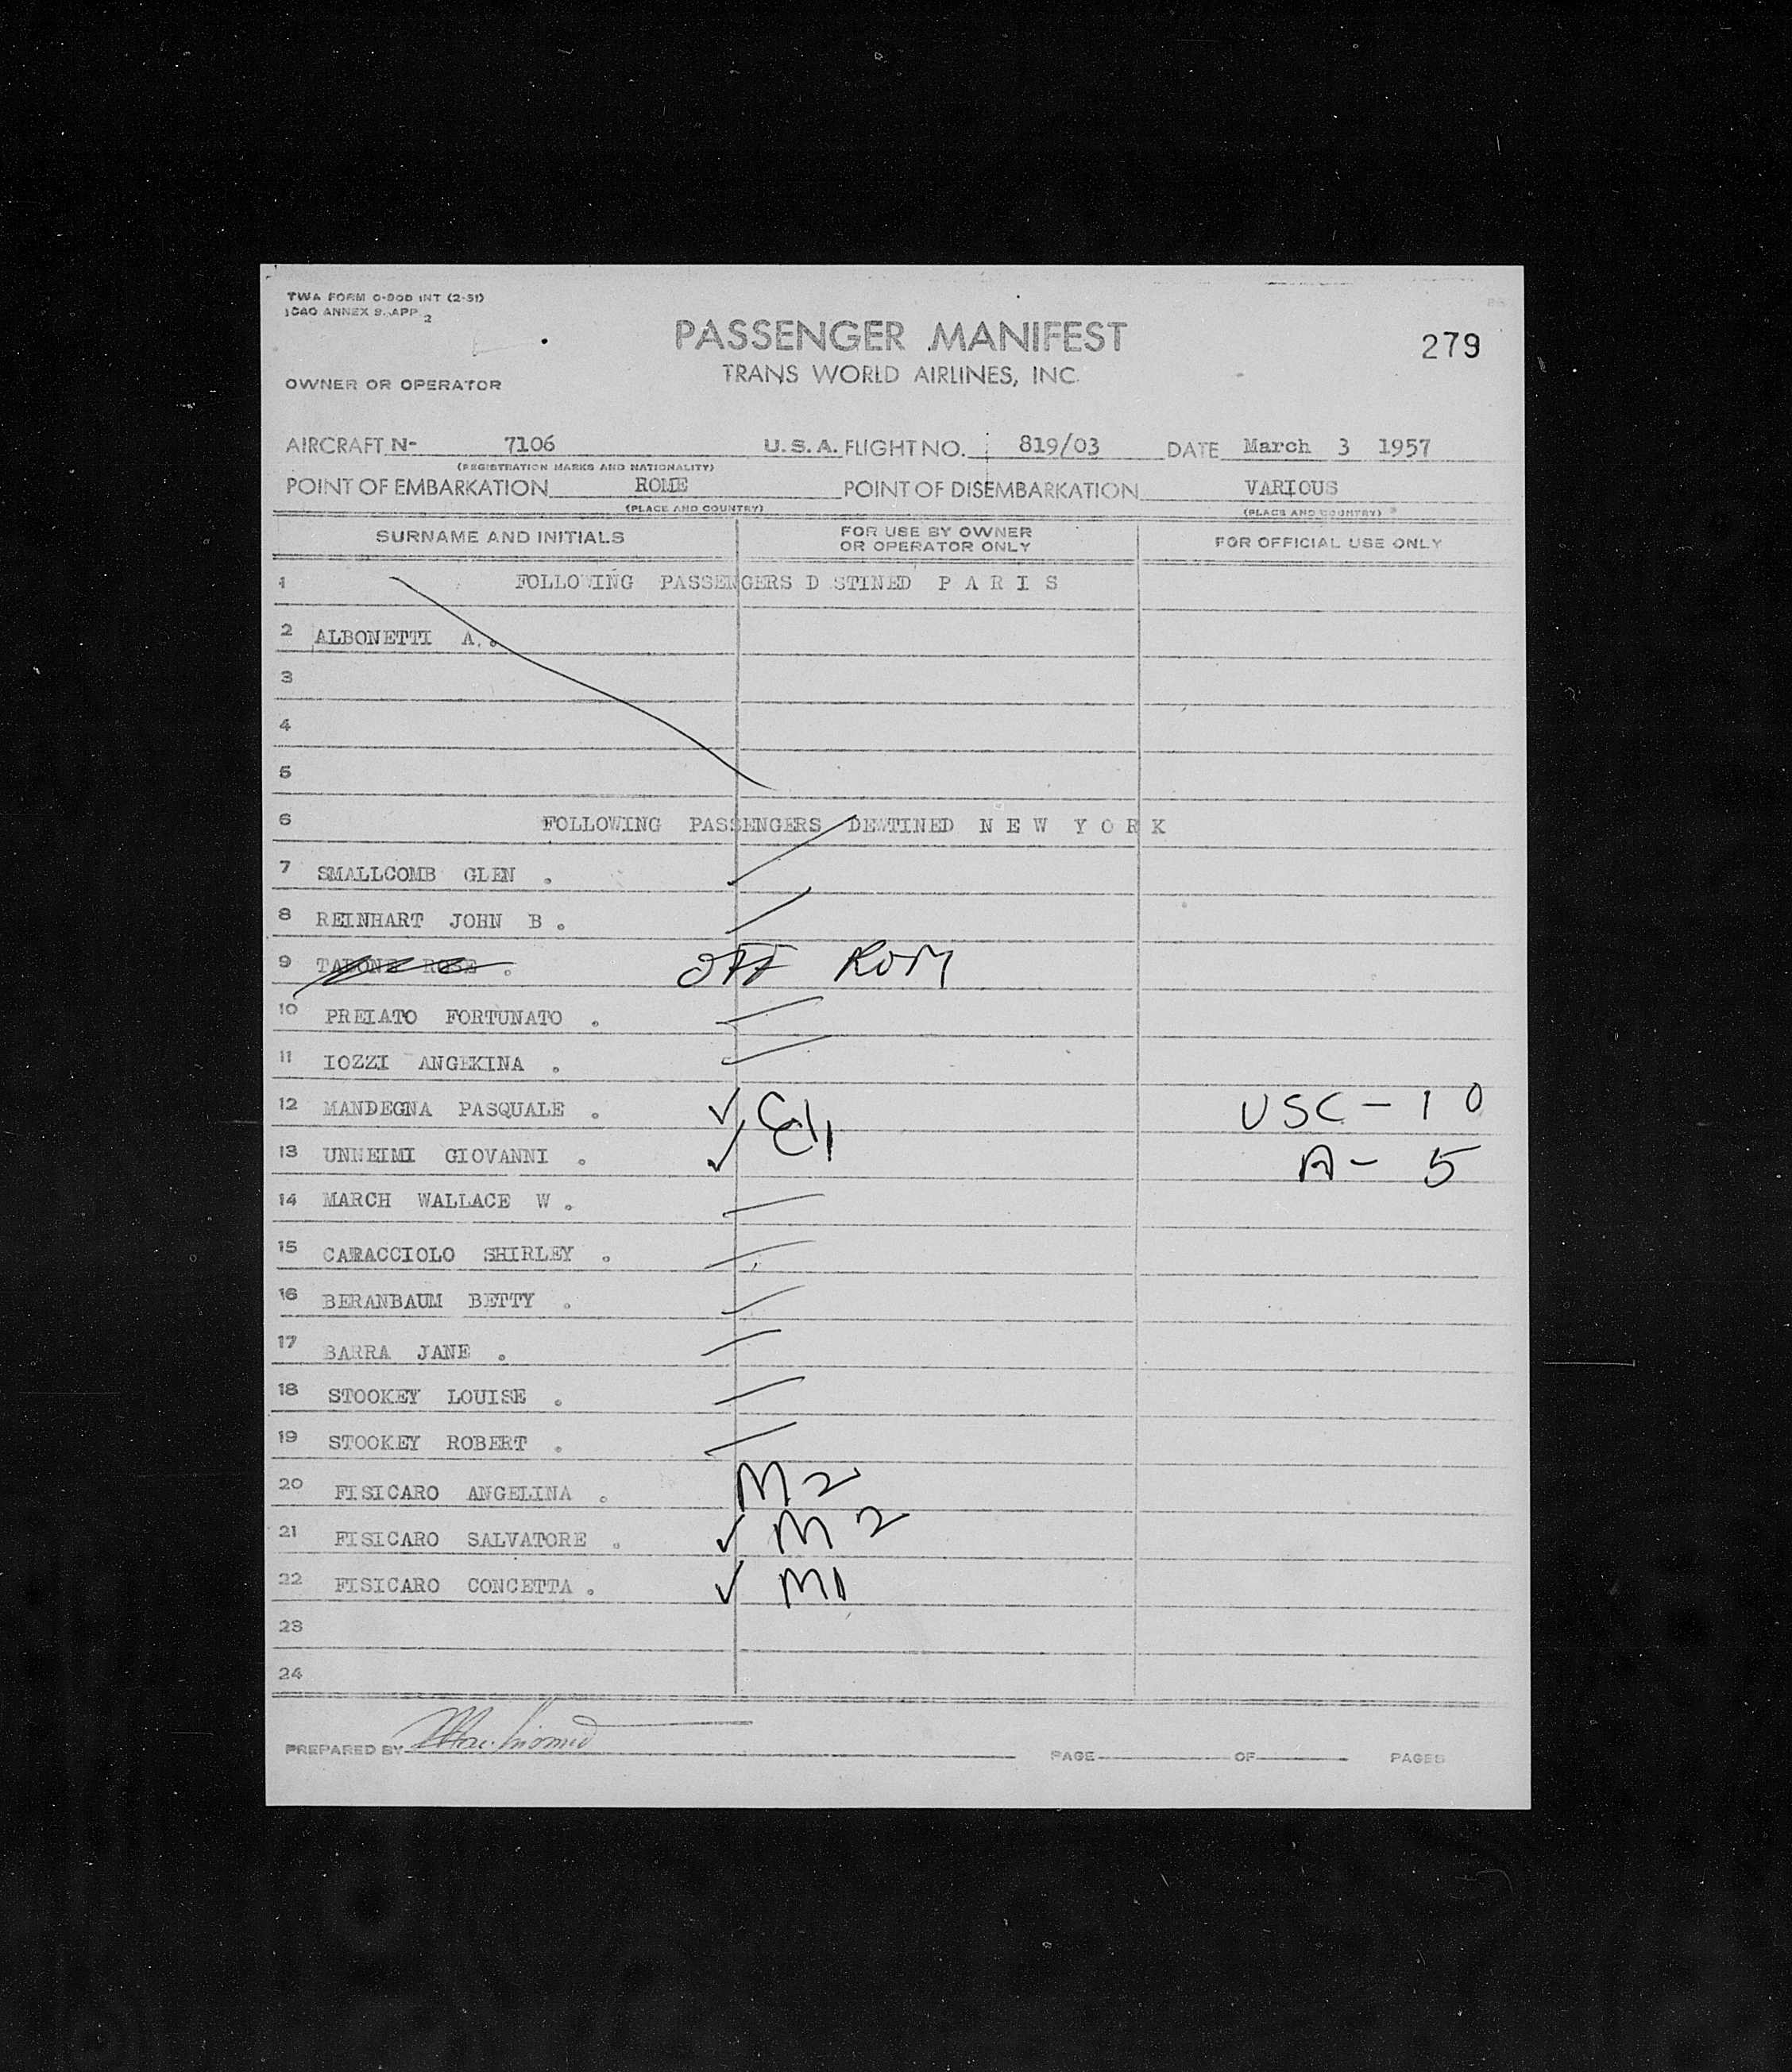 TWA FORM O-90D INT (2-51)
ICAO ANNEX 9. APP 2
PASSENGER MANIFEST
279
TRANS WORLD AIRLINES, INC.
OWNER OR OPERATOR
AIRCRAFT N- 7106 U.S.A. FLIGHT NO. 819/03 DATE March 3 1957
(REGISTRATION MARKS AND NATIONALITY)
POINT OF EMBARKATION ROME POINT OF DISEMBARKATION VARIOUS
(PLACE AND COUNTRY) (PLACE AND COUNTRY)
SURNAME AND INITIALS FOR USE BY OWNER OR OPERATOR ONLY FOR OFFICIAL USE ONLY
1 FOLLOWING PASSENGERS D STINED P A R I S
2 ALBONETTI A.
3
4
5
6 FOLLOWING PASSENGERS DEWTINED N E W Y O R K
7 SMALLCOMB GLEN .
8 REINHART JOHN B .
9 TABONE ROSE . OFF ROM
10 PRELATO FORTUNATO .
11 IOZZI ANGEKINA .
12 MANDEGNA PASQUALE . ✓ USC - 10
13 UNNEIMI GIOVANNI . ✓ A - 5
14 MARCH WALLACE W .
15 CARACCIOLO SHIRLEY .
16 BERANBAUM BETTY .
17 BARRA JANE .
18 STOOKEY LOUISE .
19 STOOKEY ROBERT .
20 FISICARO ANGELINA . M2
21 FISICARO SALVATORE . ✓ M2
22 FISICARO CONCETTA . ✓ M1
23
24
PREPARED BY PAGE OF PAGES